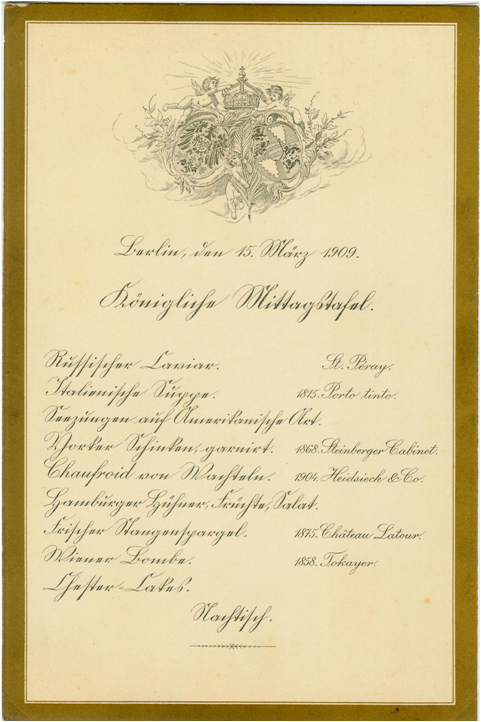 Berlin, den 15. März 1909.
Königliche Mittagstafel.
Russischer Caviar. St. Péray.
Italienische Suppe. 1815. Porto tinto.
Seezungen auf Amerikanische Art.
Yorker Schinken, garnirt. 1868. Steinberger Cabinet.
Chaufroid von Wachteln. 1904. Heidsieck & Co.
Hamburger Hühner, Früchte, Salat.
Frischer Stangenspargel. 1875. Château Latour.
Wiener Bombe. 1858. Tokayer.
Chester-Cakes.
Nachtisch.